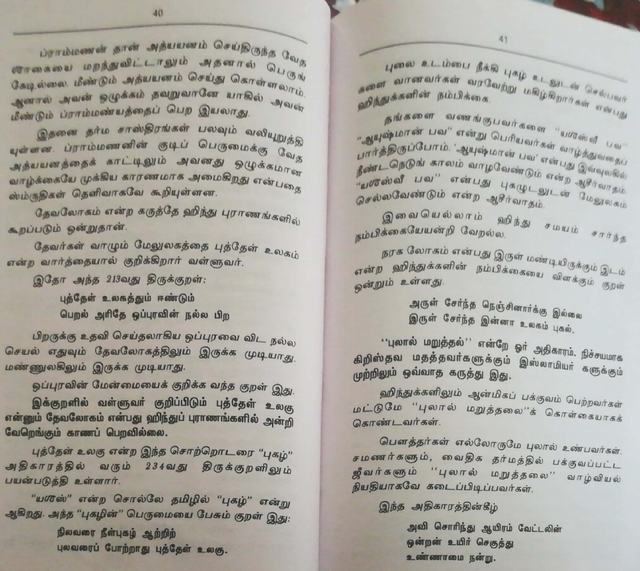 40
ப்ராம்மணன் தான் அத்யயனம் செய்திருந்த வேத
ஶாகையை மறந்துவிட்டாலும் அதனால் பெருங்
கேடில்லை. மீண்டும் அத்யயனம் செய்து கொள்ளலாம்.
ஆனால் அவன் ஒழுக்கம் தவறுவானே யாகில் அவன்
மீண்டும் ப்ராம்மண்யத்தைப் பெற இயலாது.
இதனை தர்ம சாஸ்திரங்கள் பலவும் வலியுறுத்தி
யுள்ளன. ப்ராம்மணனின் குடிப் பெருமைக்கு வேத
அத்யயனத்தைக் காட்டிலும் அவனது ஒழுக்கமான
வாழ்க்கையே முக்கிய காரணமாக அமைகிறது என்பதை
ஸ்ம்ருதிகள் தெளிவாகவே கூறியுள்ளன.
தேவலோகம் என்ற கருத்தே ஹிந்து புராணங்களில்
கூறப்படும் ஒன்றுதான்.
தேவர்கள் வாழும் மேலுலகத்தை புத்தேள் உலகம்
என்ற வார்த்தையால் குறிக்கிறார் வள்ளுவர்.
இதோ அந்த 213வது திருக்குறள்:
புத்தேள் உலகத்தும் ஈண்டும்
பெறல் அரிதே ஒப்புரவின் நல்ல பிற
பிறருக்கு உதவி செய்தலாகிய ஒப்புரவை விட நல்ல
செயல் எதுவும் தேவலோகத்திலும் இருக்க முடியாது.
மண்ணுலகிலும் இருக்க முடியாது.
ஒப்புரவின் மேன்மையைக் குறிக்க வந்த குறள் இது.
இக்குறளில் வள்ளுவர் குறிப்பிடும் புத்தேள் உலகு
என்னும் தேவலோகம் என்பது ஹிந்துப் புராணங்களில் அன்றி
வேறெங்கும் காணப் பெறவில்லை.
புத்தேள் உலகு என்ற இந்த சொற்றொடரை "புகழ்"
அதிகாரத்தில் வரும் 234வது திருக்குறளிலும்
பயன்படுத்தி உள்ளார்.
"யஶஸ்" என்ற சொல்லே தமிழில் "புகழ்" என்று
ஆகிறது. அந்த "புகழின்" பெருமையை பேசும் குறள் இது:
நிலவரை நீள்புகழ் ஆற்றிற்
புலவரைப் போற்றாது புத்தேள் உலகு.
41
புலை உடம்பை நீக்கி புகழ் உடலுடன் செல்பவர்
களை வானவர்கள் வரவேற்று மகிழ்கிறார்கள் என்பது
ஹிந்துக்களின் நம்பிக்கை.
தங்களை வணங்குபவர்களை "யஶஸ்வீ பவ"
"ஆயுஷ்மான் பவ" என்று பெரியவர்கள் வாழ்த்துவதைப்
பார்த்திருப்போம். 'ஆயுஷ்மான் பவ' என்பது இவ்வுலகில்
நீண்டநெடுங் காலம் வாழவேண்டும் என்ற ஆசிர்வாதம்.
"யஶஸ்வீ பவ" என்பது புகழுடலுடன் மேலுலகம்
செல்லவேண்டும் என்ற ஆசிர்வாதம்.
இவையெல்லாம் ஹிந்து சமயம் சார்ந்த
நம்பிக்கையேயன்றி வேறல்ல.
நரக லோகம் என்பது இருள் மண்டியிருக்கும் இடம்
என்ற ஹிந்துக்களின் நம்பிக்கையை விளக்கும் குறள்
ஒன்றும் உள்ளது.
அருள் சேர்ந்த நெஞ்சினார்க்கு இல்லை
இருள் சேர்ந்த இன்னா உலகம் புகல்.
"புலால் மறுத்தல்" என்றே ஓர் அதிகாரம். நிச்சயமாக
கிறிஸ்தவ மதத்தவர்களுக்கும் இஸ்லாமியர் களுக்கும்
முற்றிலும் ஒவ்வாத கருத்து இது.
ஹிந்துக்களிலும் ஆன்மிகப் பக்குவம் பெற்றவர்கள்
மட்டுமே "புலால் மறுத்தலை"க் கொள்கையாகக்
கொண்டவர்கள்.
பௌத்தர்கள் எல்லோருமே புலால் உண்பவர்கள்.
சமணர்களும், வைதிக தர்மத்தில் பக்குவப்பட்ட
ஜீவர்களும் "புலால் மறுத்தலை" வாழ்வியல்
நியதியாகவே கடைப்பிடிப்பவர்கள்.
இந்த அதிகாரத்தின்கீழ்
அவி சொரிந்து ஆயிரம் வேட்டலின்
ஒன்றன் உயிர் செகுத்து
உண்ணாமை நன்று.